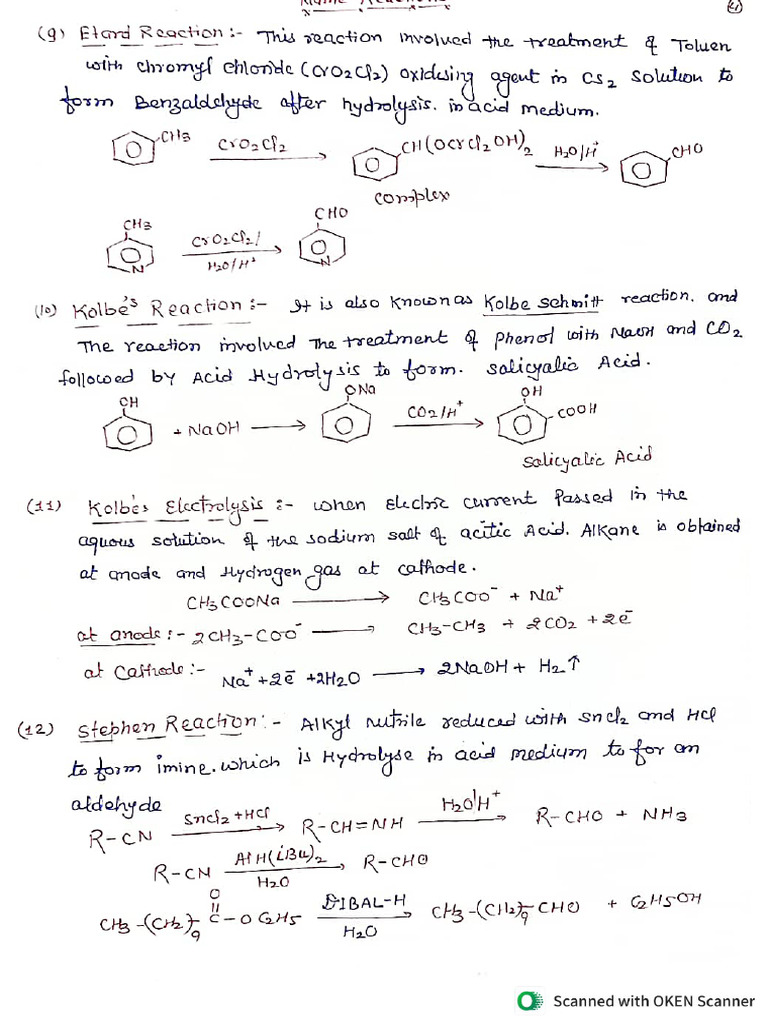 Name Reactions
(9) Etard Reaction:- This reaction involved the treatment of Toluen
with chromyl chloride (CrO2Cl2) oxidising agent in CS2 solution to
form Benzaldehyde after hydrolysis. in acid medium.
CH3 CrO2Cl2 CH(OCrCl2OH)2 H2O/H+ CHO
complex
CH3 CrO2Cl2/ H2O/H+ CHO
N N
(10) Kolbe's Reaction:- It is also known as Kolbe Schmitt reaction. and
The reaction involved The treatment of phenol with NaOH and CO2
followed by Acid Hydrolysis to form. Salicyalic Acid.
OH + NaOH ⟶ ONa CO2/H+ ⟶ OH COOH
Salicyalic Acid
(11) Kolbe's Electrolysis:- when Electric current Passed in the
aquous solution of the sodium salt of acitic Acid. Alkane is obtained
at anode and Hydrogen gas at cathode.
CH3COONa ⟶ CH3COO- + Na+
at anode:- 2CH3-COO- ⟶ CH3-CH3 + 2CO2 + 2e-
at Cathode:- Na+ + 2e- + 2H2O ⟶ 2NaOH + H2↑
(12) Stephen Reaction:- Alkyl Nitrile reduced with SnCl2 and HCl
to form imine. which is Hydrolyse in acid medium to for an
aldehyde
R-CN SnCl2+HCl ⟶ R-CH=NH H2O/H+ ⟶ R-CHO + NH3
R-CN AlH(iBu)2 H2O ⟶ R-CHO
CH3-(CH2)9-C(=O)-OC2H5 DIBAL-H H2O ⟶ CH3-(CH2)9-CHO + C2H5OH
Scanned with OKEN Scanner